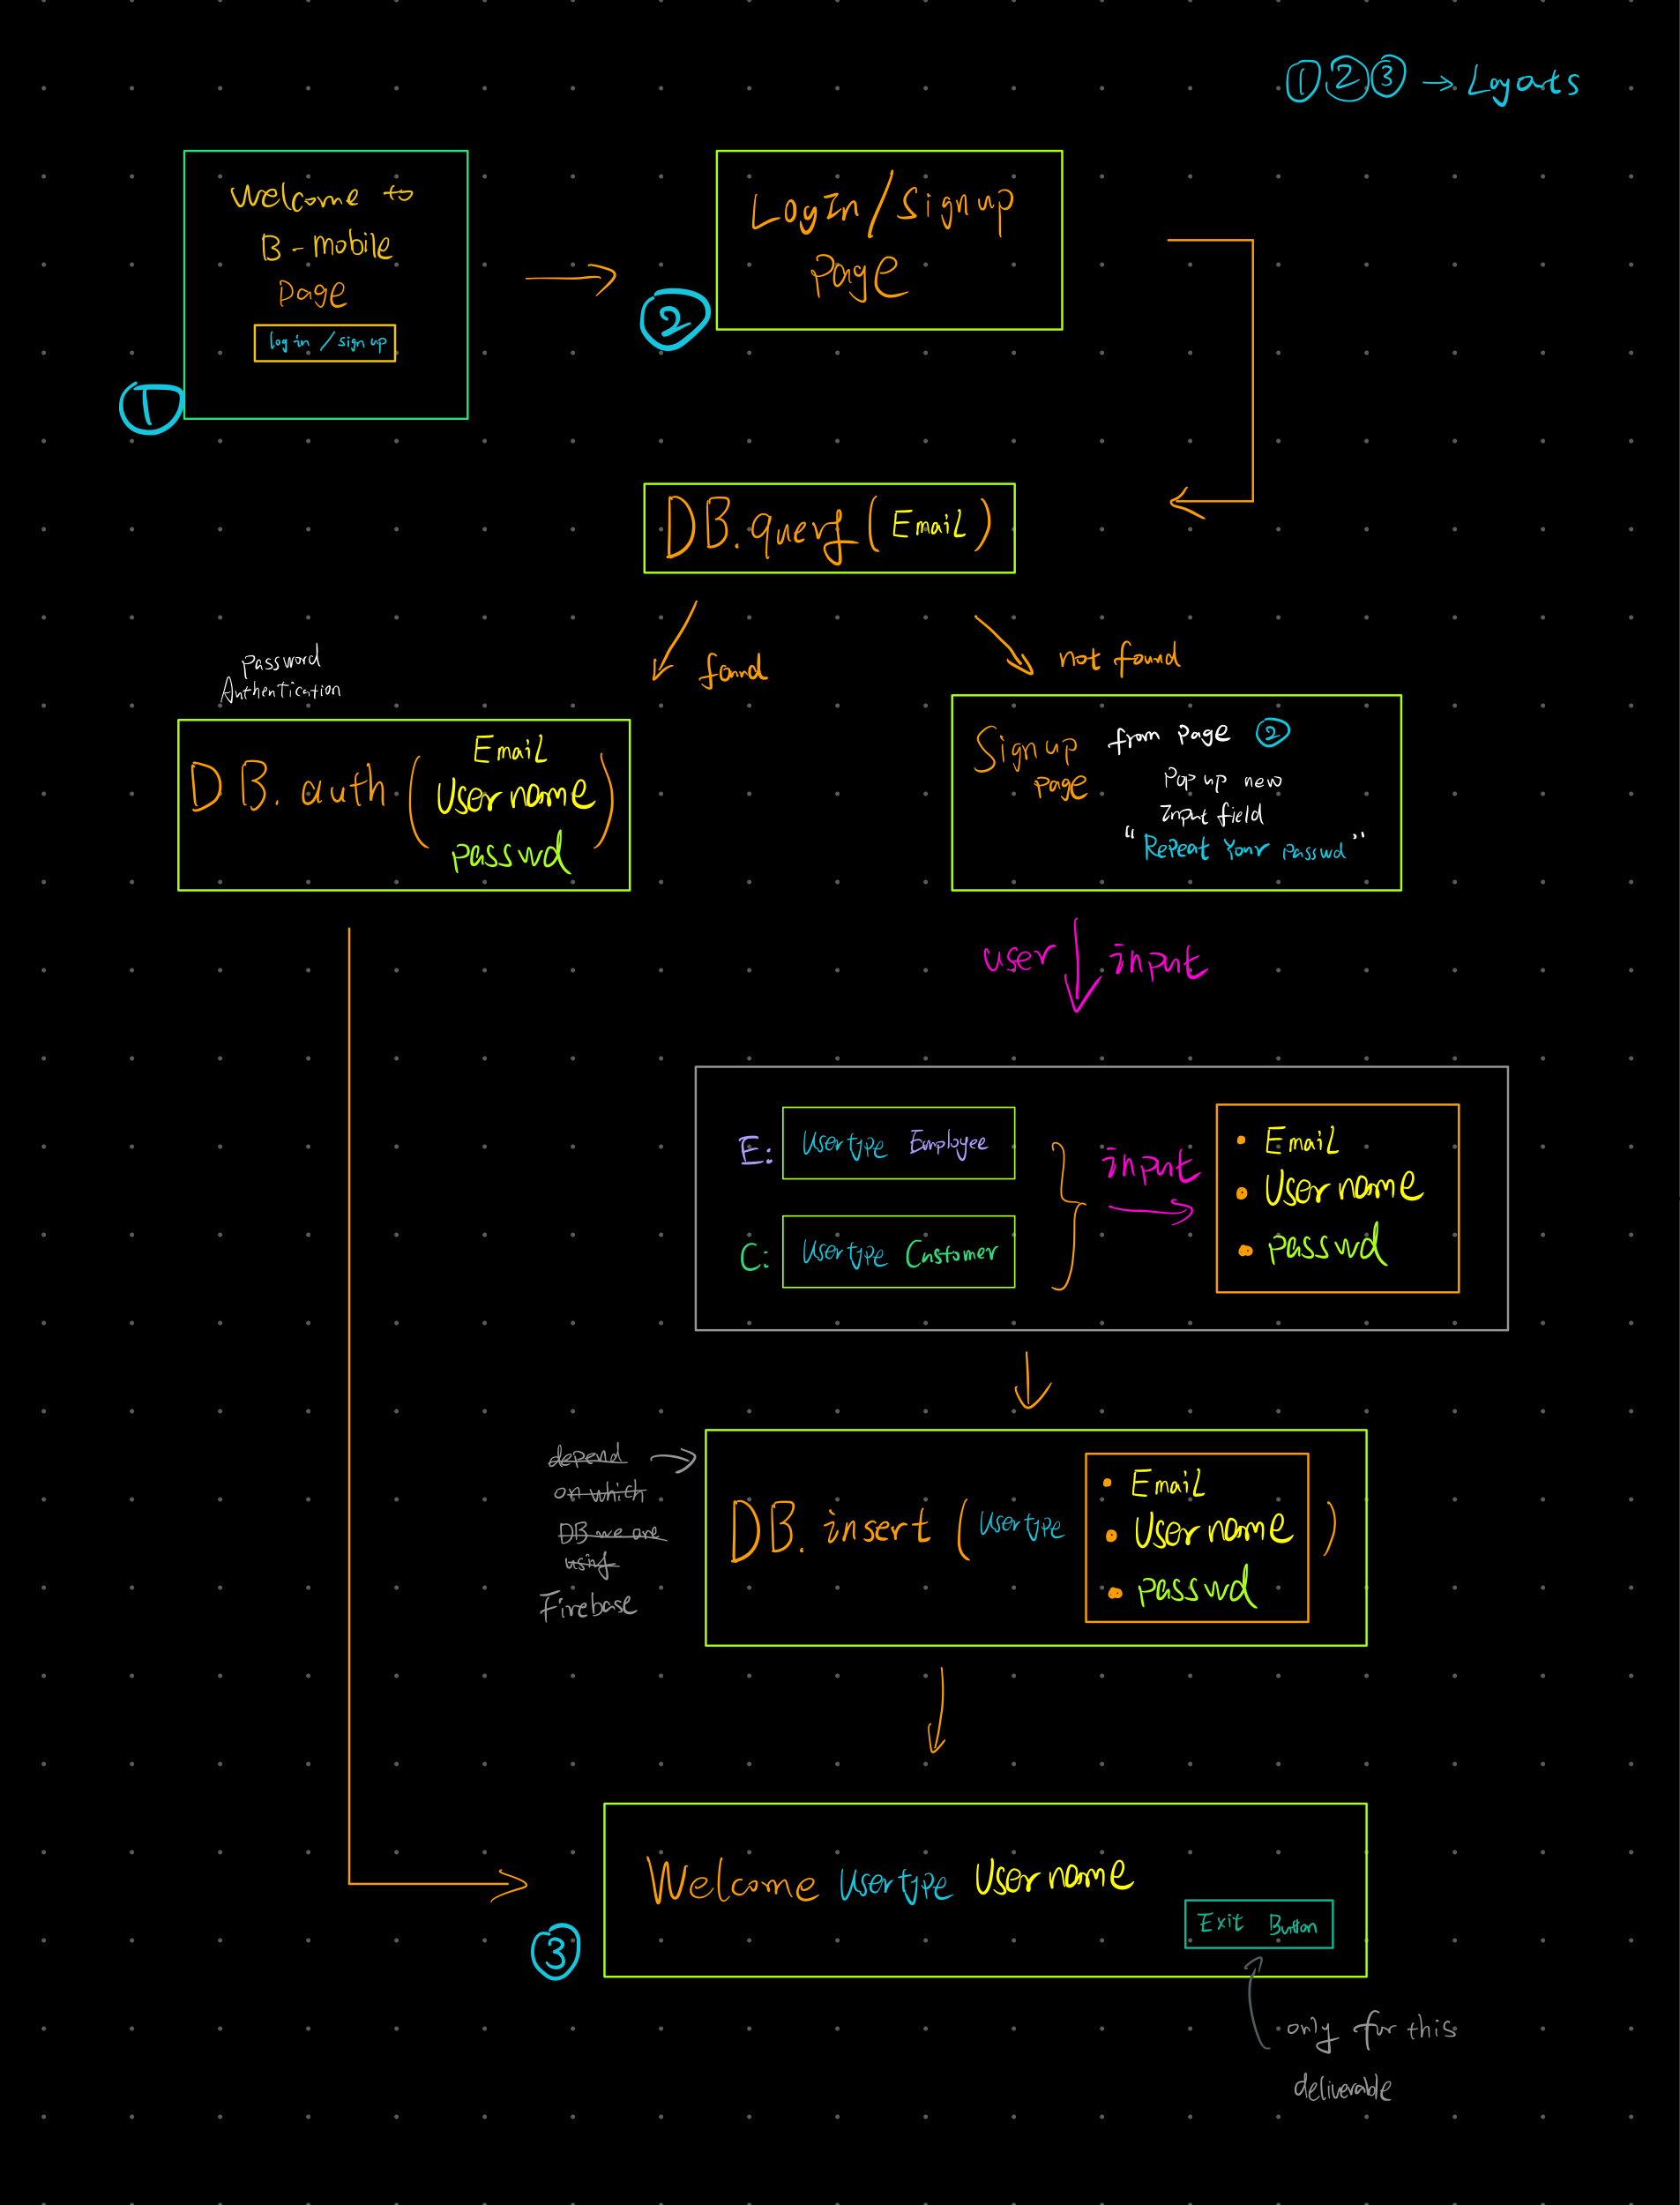 ① ② ③ → Layouts
Welcome to
B-mobile
page
log in / sign up
①
LogIn/Signup
page
②
DB.query (Email)
found
not found
password
Authentication
DB. auth (
Email
Username
passwd
)
Signup
page
from page ②
Pop up new
Input field
"Repeat Your passwd"
user input
E: Usertype Employee
C: Usertype Customer
input
• Email
• Username
• passwd
depend
on which
DB we are
using
Firebase
DB. insert (Usertype
• Email
• Username
• passwd
)
Welcome Usertype Username
Exit Button
③
only for this
deliverable